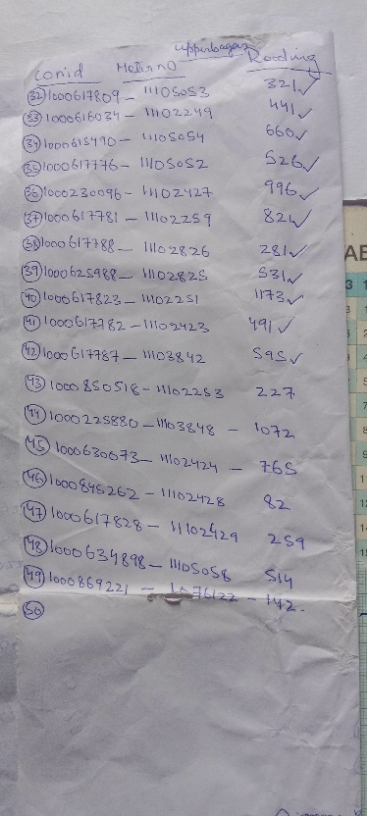 Upperbagas
Con.id Meter No Reading
32 1000617809 - 11105053 321 ✓
33 1000616034 - 11102249 441 ✓
34 1000615490 - 11105054 660 ✓
35 1000617776 - 11105052 526 ✓
36 1000230096 - 11102427 996 ✓
37 1000617781 - 11102259 821 ✓
38 1000617788 - 11102826 281 ✓
39 1000625988 - 11102825 531 ✓
40 1000617823 - 11102251 1173 ✓
41 1000617782 - 11102423 491 ✓
42 1000617787 - 11103842 595 ✓
43 1000850518 - 11102253 227
44 1000225880 - 11103848 - 1072
45 1000630073 - 11102424 - 765
46 1000845262 - 11102428 82
47 1000617828 - 11102429 259
48 1000634898 - 11105058 514
49 1000869221 - - 142.
50
AB